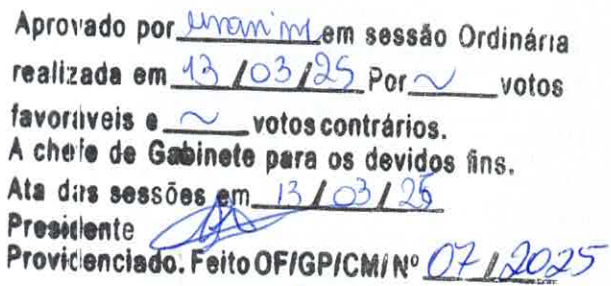 Aprovado por unanim em sessão Ordinária
realizada em 13 / 03 / 25 Por ~ votos
favoráveis e ~ votos contrários.
A chefe de Gabinete para os devidos fins.
Ata das sessões em 13 / 03 / 25
Presidente
Providenciado. Feito OF/GP/CM/ Nº 07 / 2025